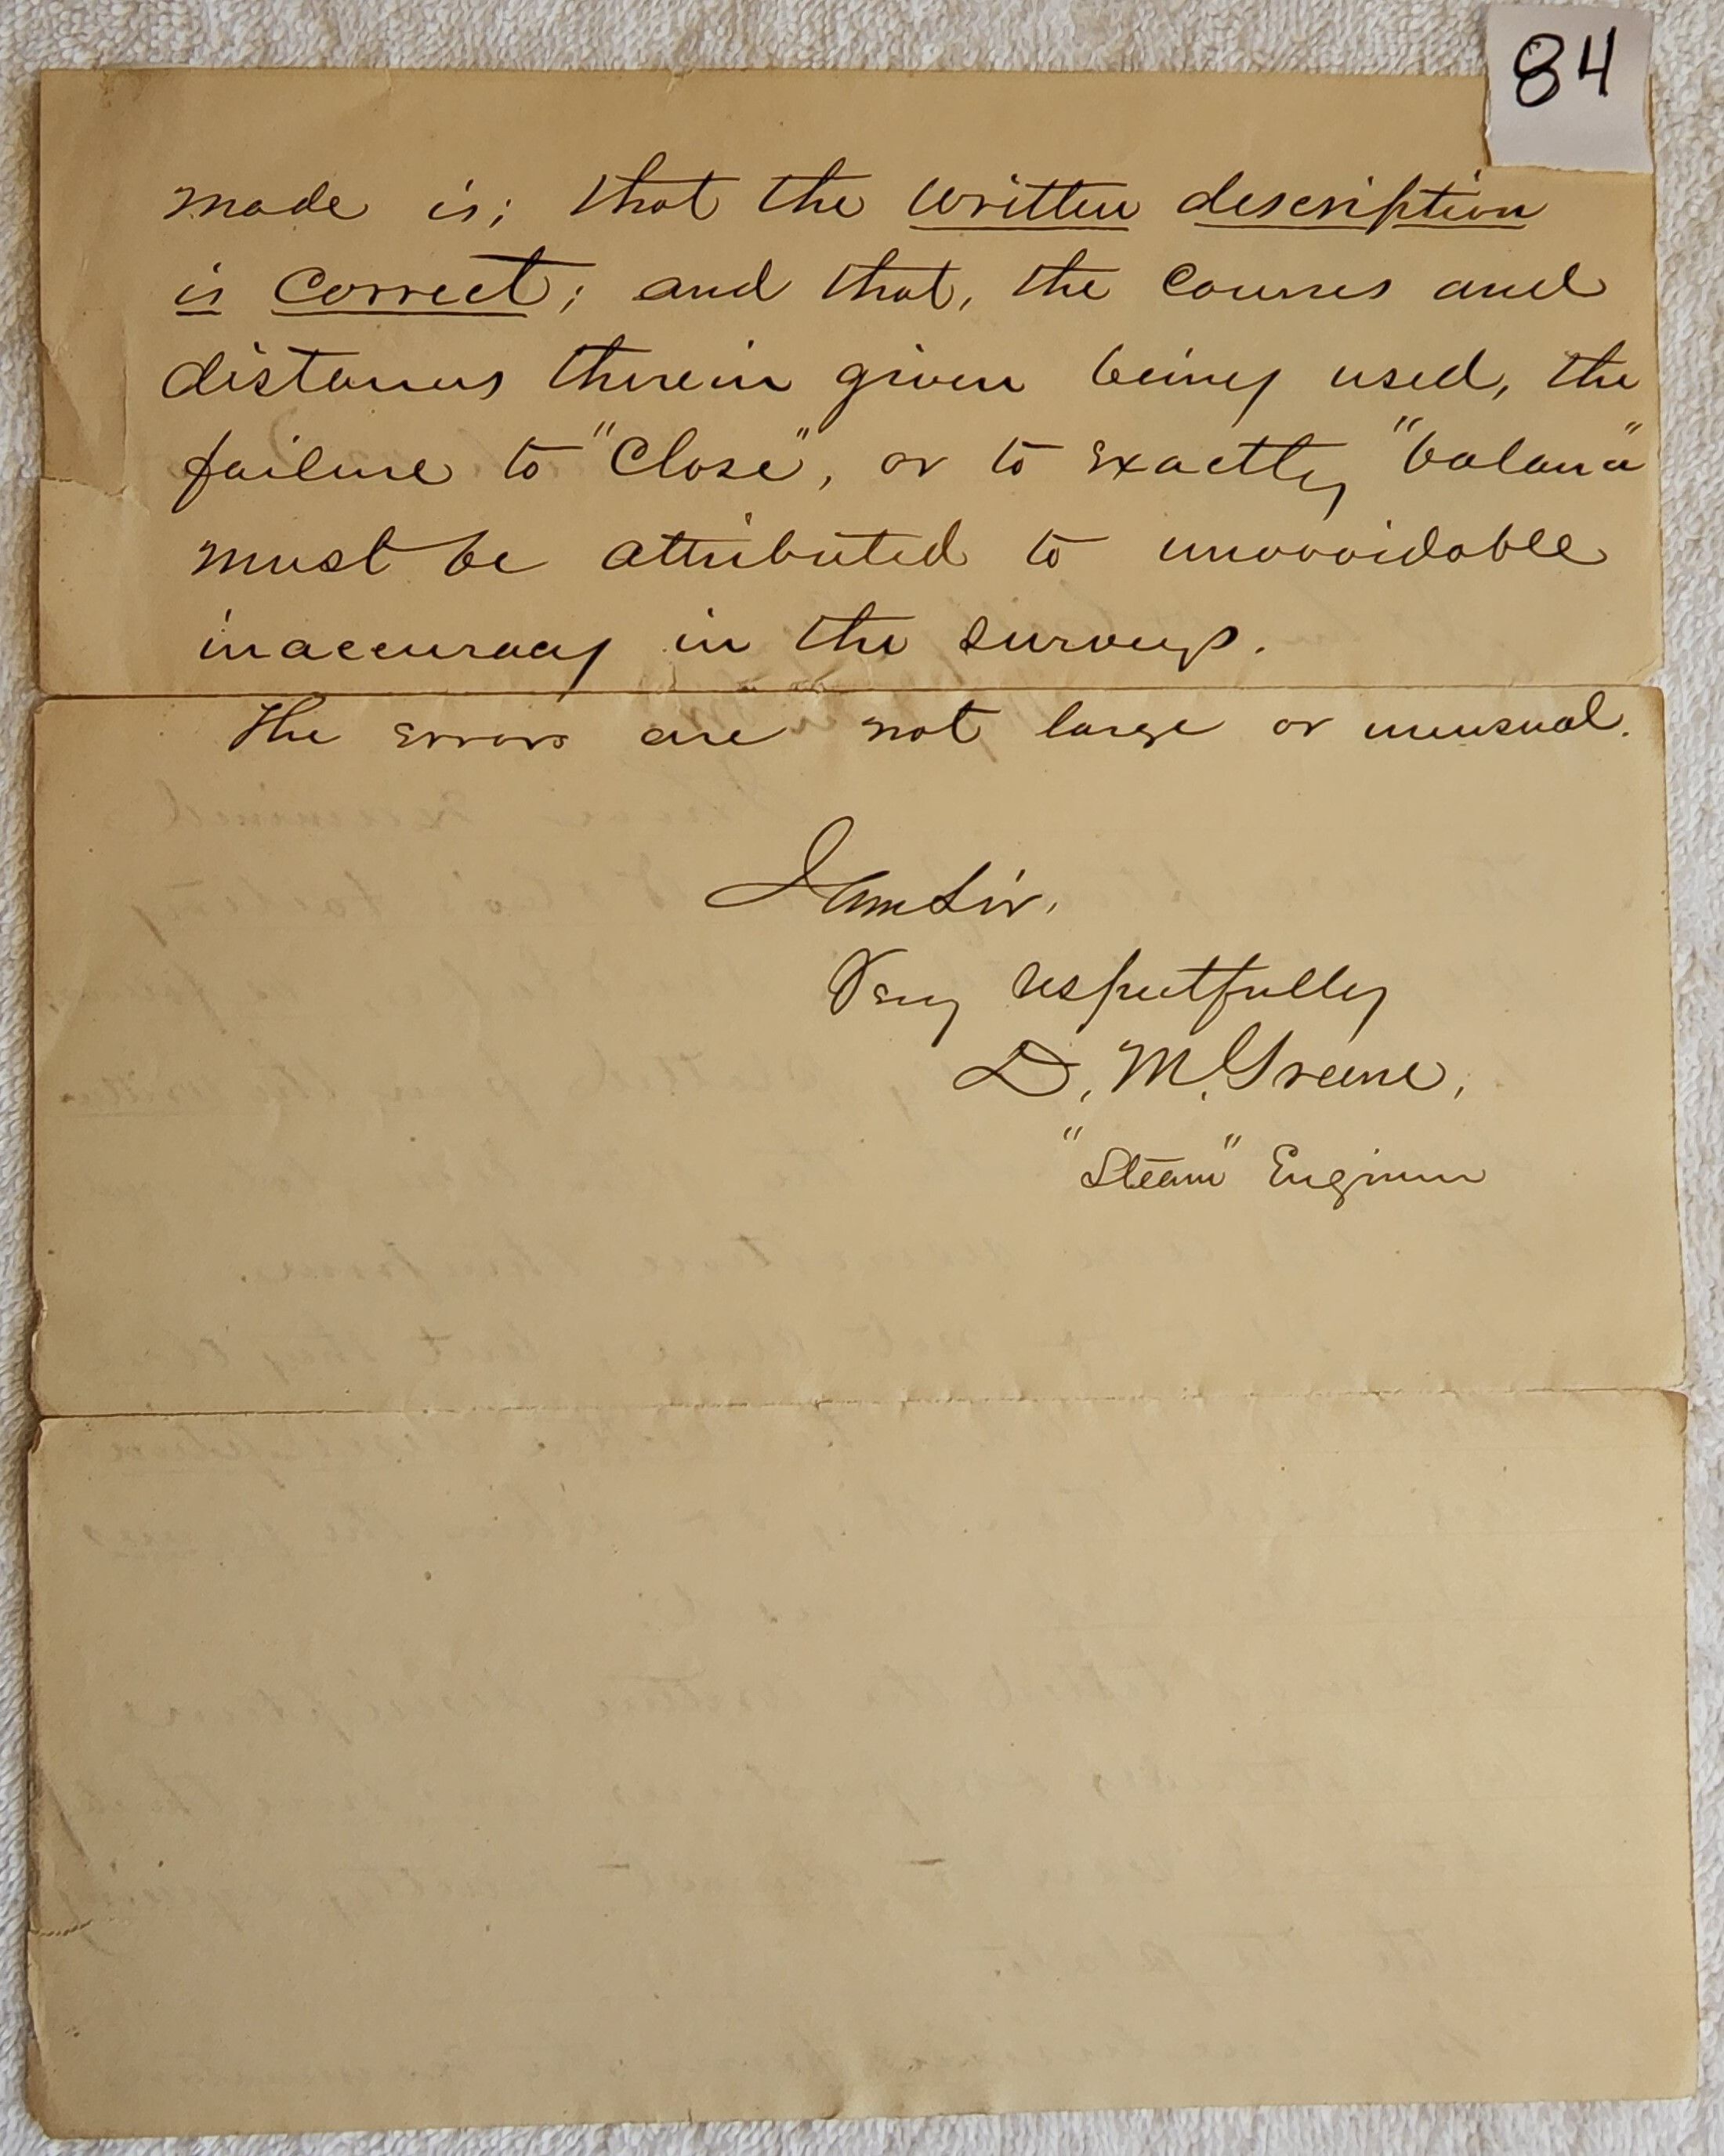 84
made is; that the written description
is correct; and that, the courses and
distances therein given being used, the
failure to "close", or to exactly "balance"
must be attributed to unavoidable
inaccuracy in the surveys.
The errors are not large or unusual.
I am Sir,
Very respectfully
D. M. Greene,
"Steam" Engineer